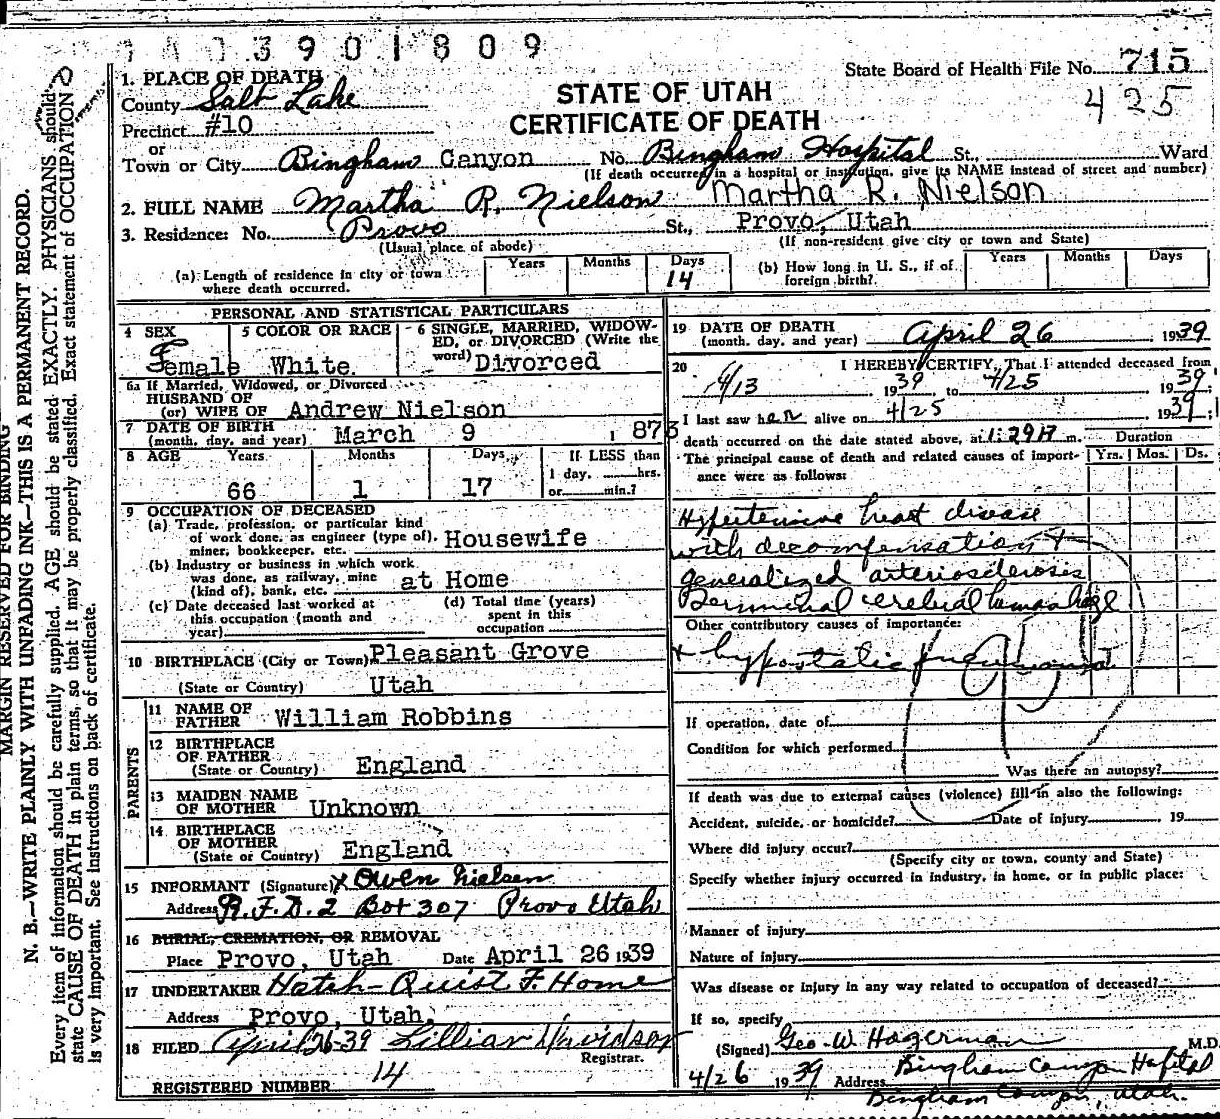 3901809
State Board of Health File No. 715
425
STATE OF UTAH
CERTIFICATE OF DEATH
1. PLACE OF DEATH
County Salt Lake
Precinct #10
or
Town or City Bingham Canyon No. Bingham Hospital St., Ward
(If death occurred in a hospital or institution, give its NAME instead of street and number)
2. FULL NAME Martha R. Nielson Martha R. Nielson
3. Residence: No. Provo St., Provo, Utah
(Usual place of abode) (If non-resident give city or town and State)
(a) Length of residence in city or town where death occurred. Years Months Days 14
(b) How long in U. S., if of foreign birth? Years Months Days
PERSONAL AND STATISTICAL PARTICULARS
4 SEX Female
5 COLOR OR RACE White
6 SINGLE, MARRIED, WIDOWED, or DIVORCED (Write the word) Divorced
6a If Married, Widowed, or Divorced
HUSBAND OF
(or) WIFE OF Andrew Nielson
7 DATE OF BIRTH
(month, day, and year) March 9 1873
8 AGE Years Months Days If LESS than
1 day, hrs.
66 1 17 or min.?
9 OCCUPATION OF DECEASED
(a) Trade, profession, or particular kind
of work done, as engineer (type of), Housewife
miner, bookkeeper, etc.
(b) Industry or business in which work
was done, as railway, mine at Home
(kind of), bank, etc.
(c) Date deceased last worked at
this occupation (month and
year)
(d) Total time (years)
spent in this
occupation
10 BIRTHPLACE (City or Town) Pleasant Grove
(State or Country) Utah
PARENTS
11 NAME OF
FATHER William Robbins
12 BIRTHPLACE
OF FATHER
(State or Country) England
13 MAIDEN NAME
OF MOTHER Unknown
14 BIRTHPLACE
OF MOTHER
(State or Country) England
15 INFORMANT (Signature) x Owen Nielsen
Address R.F.D. 2 Box 307 Provo Utah
16 BURIAL, CREMATION, OR REMOVAL
Place Provo, Utah Date April 26 1939
17 UNDERTAKER Hatch-Quist F. Home
Address Provo, Utah.
18 FILED April 26-39 Lillian Davidson
Registrar.
REGISTERED NUMBER 14
19 DATE OF DEATH
(month, day, and year) April 26, 1939
20 I HEREBY CERTIFY, That I attended deceased from
4/13, 1939 to 4/25 1939;
I last saw her alive on 4/25 1939;
death occurred on the date stated above, at 1:29 m.
Duration
The principal cause of death and related causes of importance were as follows: Yrs. Mos. Ds.
Hypertensive heart disease
with decompensation +
generalized arteriosclerosis
Terminal cerebral hemorrhage
Other contributory causes of importance:
+ hypostatic pneumonia
If operation, date of
Condition for which performed
Was there an autopsy?
If death was due to external causes (violence) fill in also the following:
Accident, suicide, or homicide? Date of injury 19
Where did injury occur?
(Specify city or town, county and State)
Specify whether injury occurred in industry, in home, or in public place:
Manner of injury
Nature of injury
Was disease or injury in any way related to occupation of deceased?
If so, specify
(Signed) Geo. W Hagerman M.D.
4/26 1939 Address Bingham Canyon Hospital
Bingham Canyon, Utah.
MARGIN RESERVED FOR BINDING
N. B.—WRITE PLAINLY WITH UNFADING INK—THIS IS A PERMANENT RECORD.
Every item of information should be carefully supplied. AGE should be stated EXACTLY. PHYSICIANS should
state CAUSE OF DEATH in plain terms, so that it may be properly classified. Exact statement of OCCUPATION
is very important. See instructions on back of certificate.